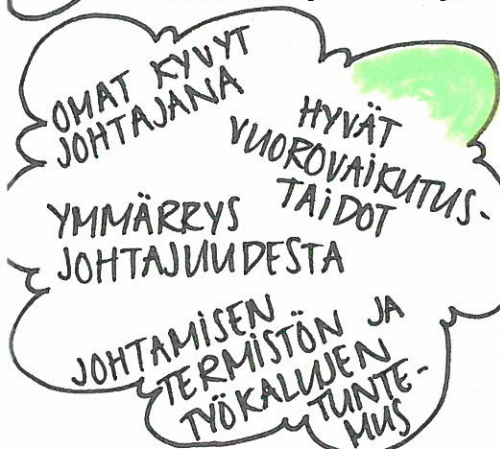 OMAT KYVYT
JOHTAJANA
HYVÄT
VUOROVAIKUTUS-
TAIDOT
YMMÄRRYS
JOHTAJUUDESTA
JOHTAMISEN
TERMISTÖN JA
TYÖKALUJEN
TUNTE-
MUS